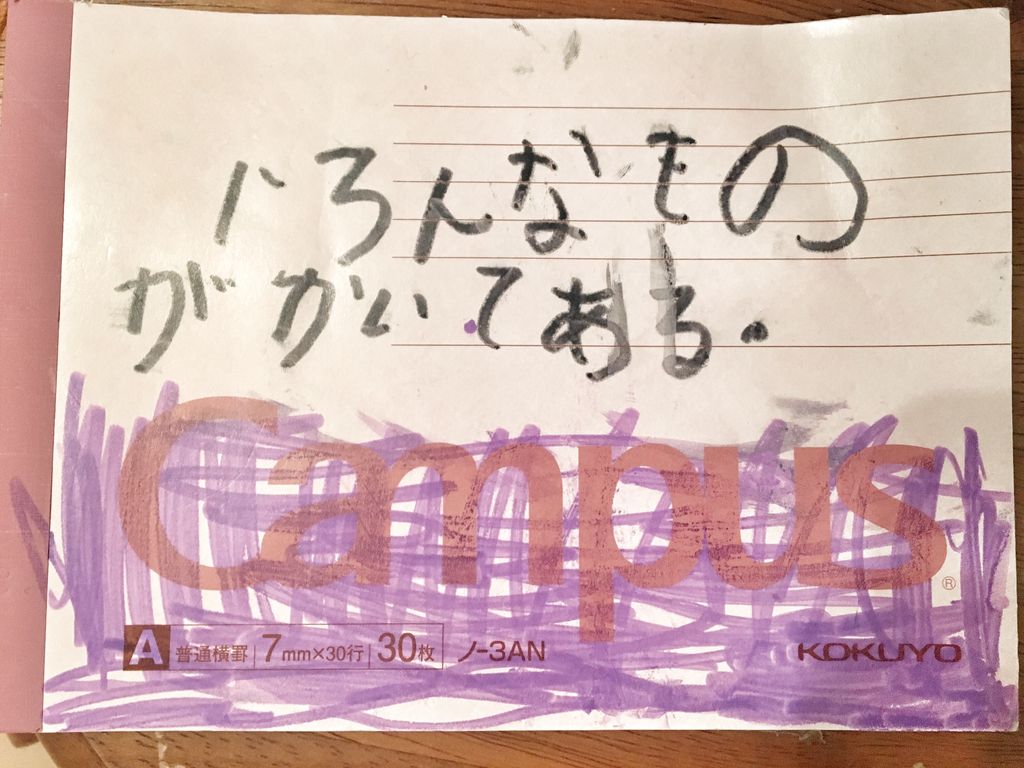 いろんなもの
がかいてある.
Campus®
A 普通横罫 7mm×30行 30枚 ノ-3AN
KOKUYO